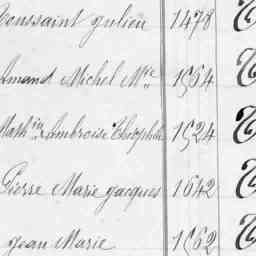 Toussaint Julien 1478
Amand Michel Mie 1564
Mathin Ambroise Théophile 1524
Pierre Marie Jacques 1642
Jean Marie 1562